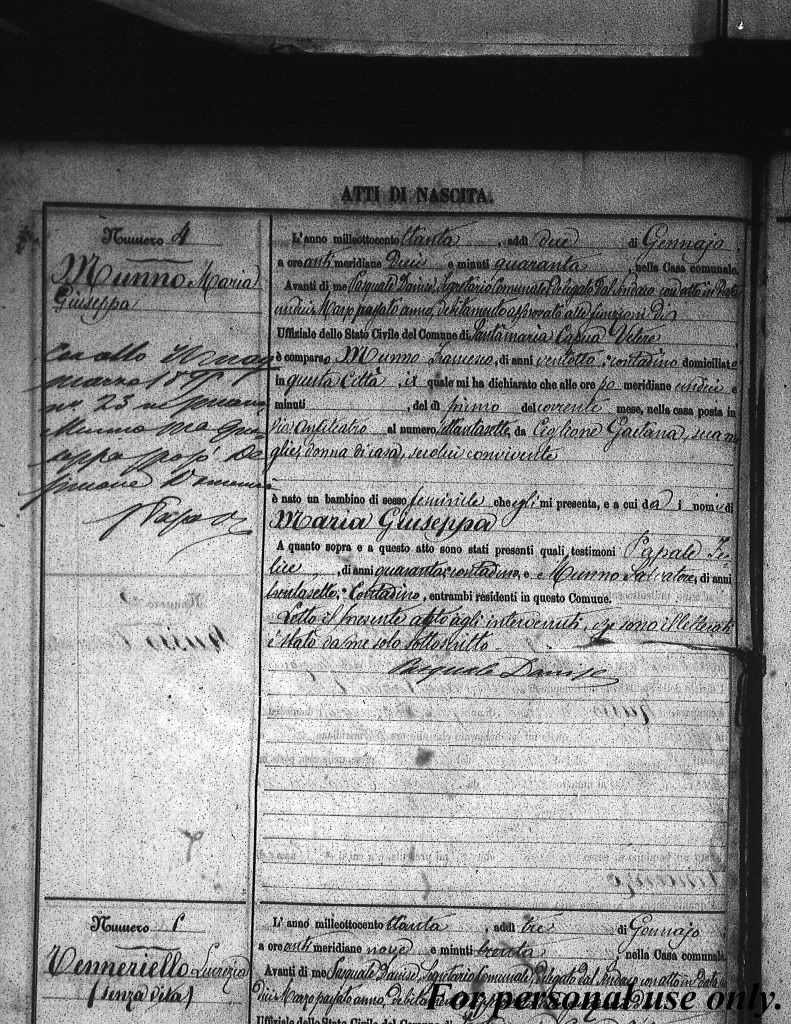 ATTI DI NASCITA.
Numero 4
Munno Maria
Giuseppa
L'anno milleottocento ttanta, addì due di Gennajo
a ore anti meridiane Dieci e minuti quaranta, nella Casa comunale.
Avanti di me Pasquale Danise, Segretario Comunale Delegato dal Sindaco con atto in Data
undici Marzo passato anno, debitamente approvato alle funzioni di
Uffiziale dello Stato Civile del Comune di Santamaria Capua Vetere
è comparso Munno Francesco, di anni ventotto, contadino domiciliato
in questa Città, il quale mi ha dichiarato che alle ore po meridiane undici e
minuti, del dì primo del corrente mese, nella casa posta in
Via Anfiteatro al numero ttantasette, da Ceglione Gaetana, sua mo
glie, donna di casa, seco lui convivente
è nato un bambino di sesso feminile che egli mi presenta, e a cui dà i nomi di
Maria Giuseppa
A quanto sopra e a questo atto sono stati presenti quali testimoni Papale Fe
lice, di anni quaranta, contadino, e Munno Salvatore, di anni
trentasette, Contadino, entrambi residenti in questo Comune.
Letto il presente atto agli intervenuti, che sono illetterati
è stato da me solo sottoscritto
Pasquale Danise
Con atto
marzo
no 23
Munno Ma Giu
seppa sposò De
Numero 5
Venneriello Lucrezia
(senza vita)
L'anno milleottocento ttanta, addì tre di Gennajo
a ore anti meridiane nove e minuti trenta, nella Casa comunale.
Avanti di me Pasquale Danise, Segretario Comunale, Delegato dal Sindaco con atto in Data
dici Marzo passato anno, debitam
Uffiziale dello Stato Civile del Comune di
For personal use only.